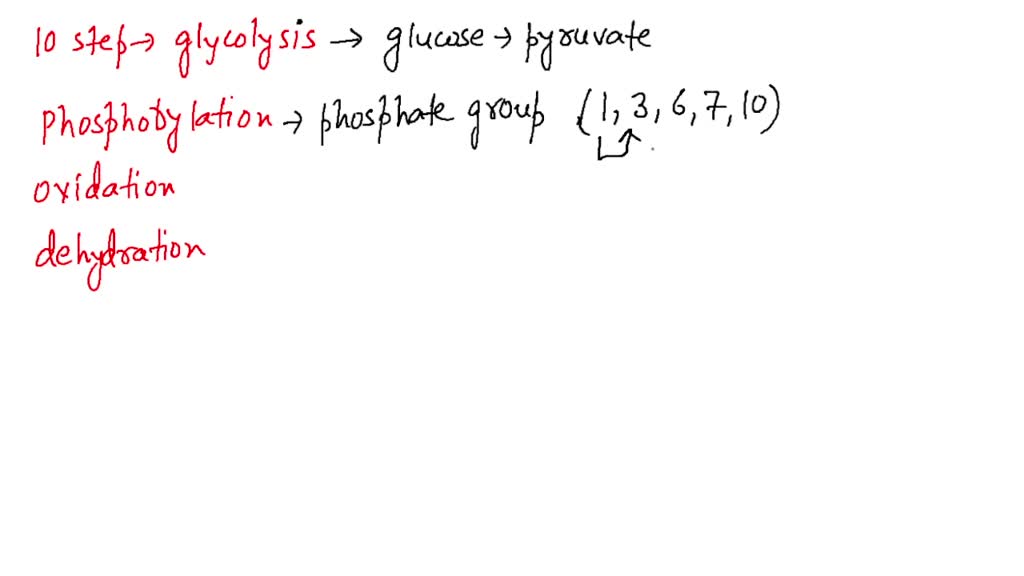 10 step → glycolysis → glucose → pyruvate
Phosphorylation → phosphate group (1, 3, 6, 7, 10)
oxidation
dehydration